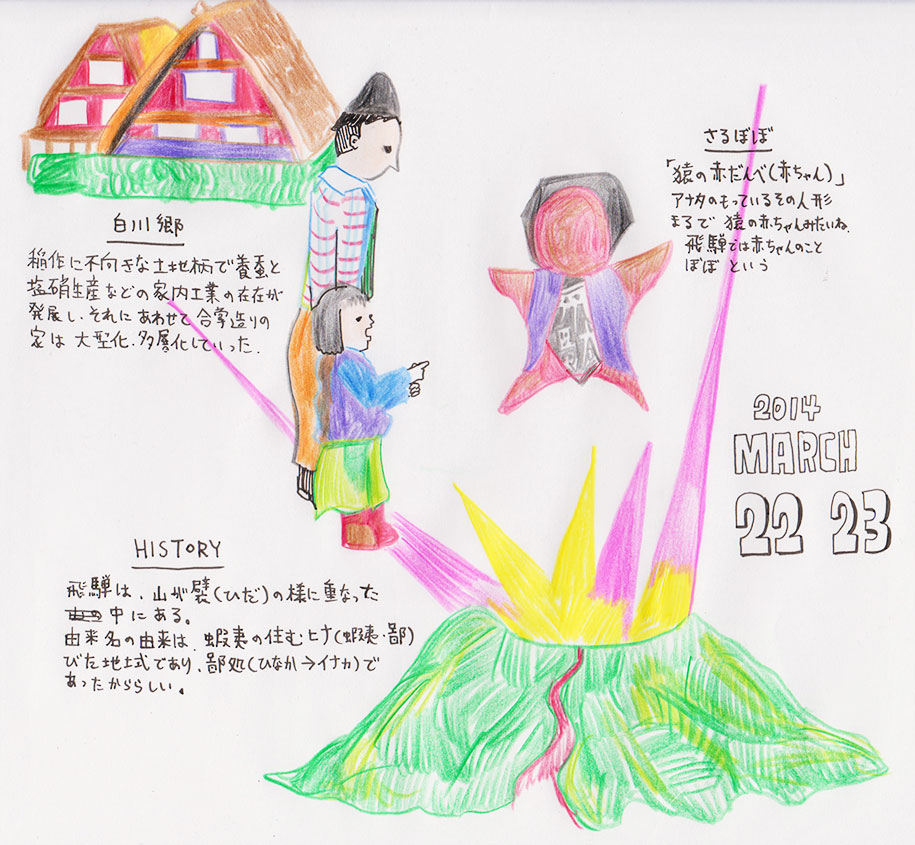 白川郷
稲作に不向きな土地柄で養蚕と
塩硝生産などの家内工業の在在が
発展し、それにあわせて合掌造りの
家は大型化、多層化していった.
さるぼぼ
「猿の赤だんべ(赤ちゃん)」
アナタのもっているその人形
まるで猿の赤ちゃんみたいね.
飛騨では赤ちゃんのこと
ぼぼという
2014
MARCH
22 23
HISTORY
飛騨は、山が襞(ひだ)の様に重なった
中にある。
由来名の由来は、蝦夷の住むヒナ(蝦夷・鄙)
びた地式であり、鄙処(ひなか→イナカ)で
あったかららしい。